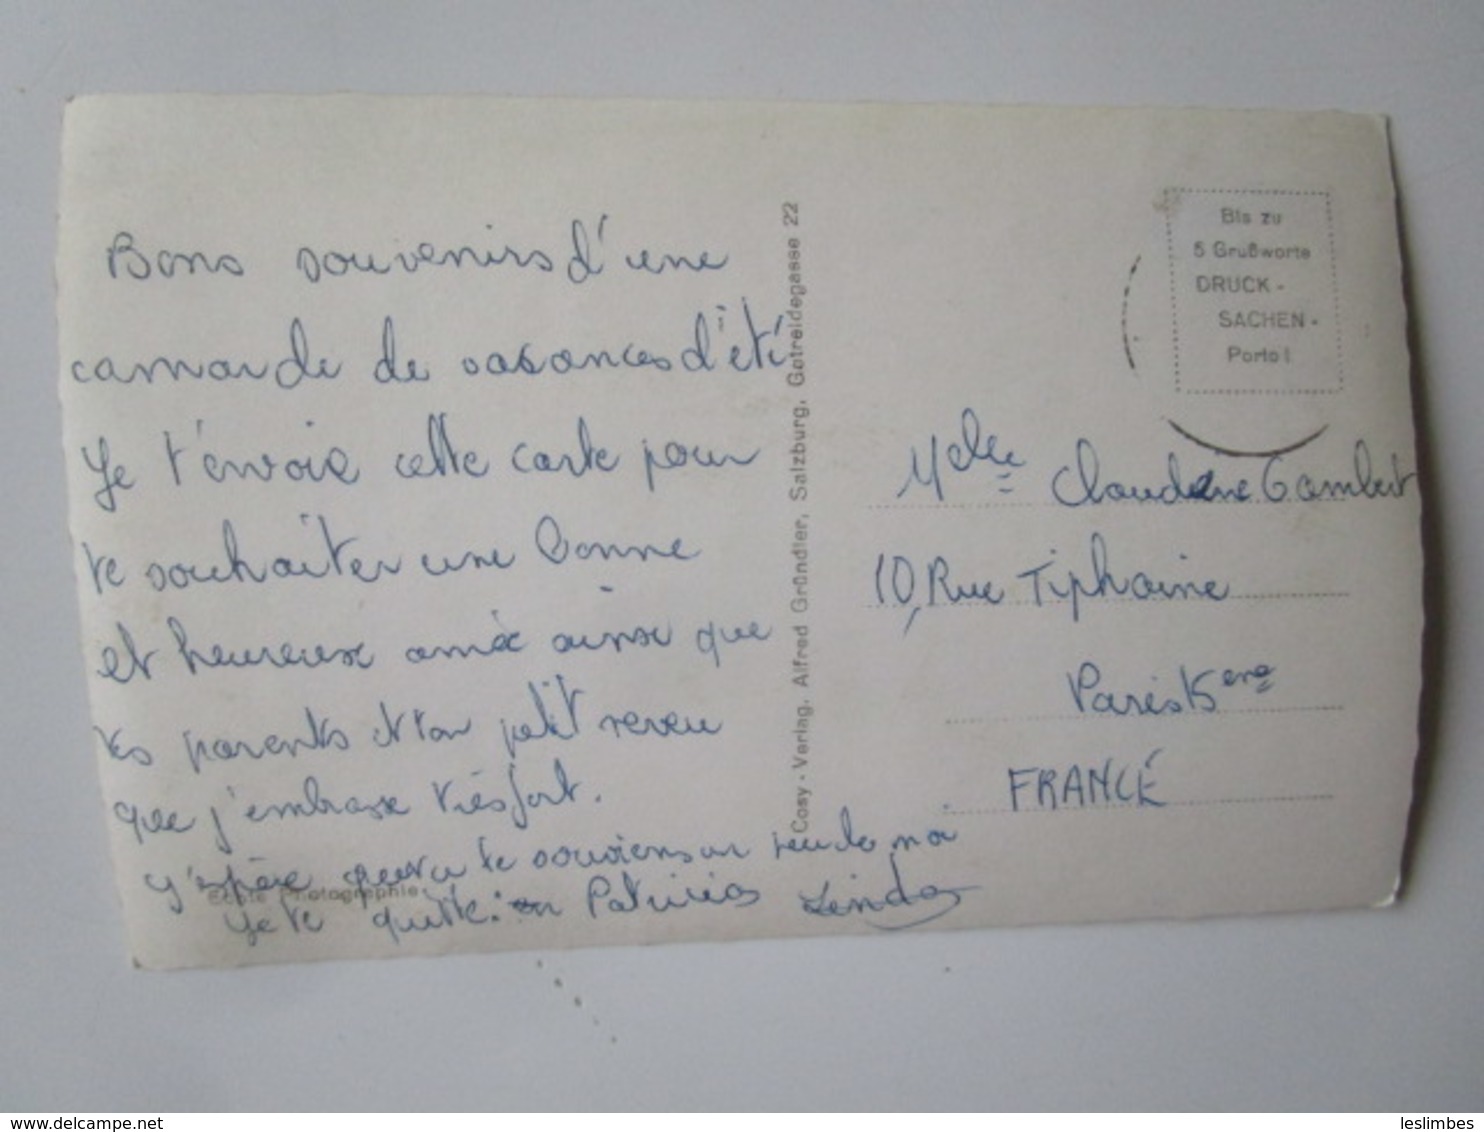 Bons souvenirs d'une
camarade de vacances d'été
Je t'envoie cette carte pour
te souhaiter une bonne
et heureuse année ainsi que
tes parents et ton petit neveu
que j'embrasse très fort.
J'espère que tu te souviens de moi
Je te quitte. Patricia Linda
Echte Photographie
Cosy - Verlag, Alfred Gründler, Salzburg, Getreidegasse 22
Bis zu
5 Grußworte
DRUCK -
SACHEN -
Porto!
Melle Claudine Gambert
10, Rue Tiphaine
Paris 15ème
FRANCE
delcampe.net
leslimbes